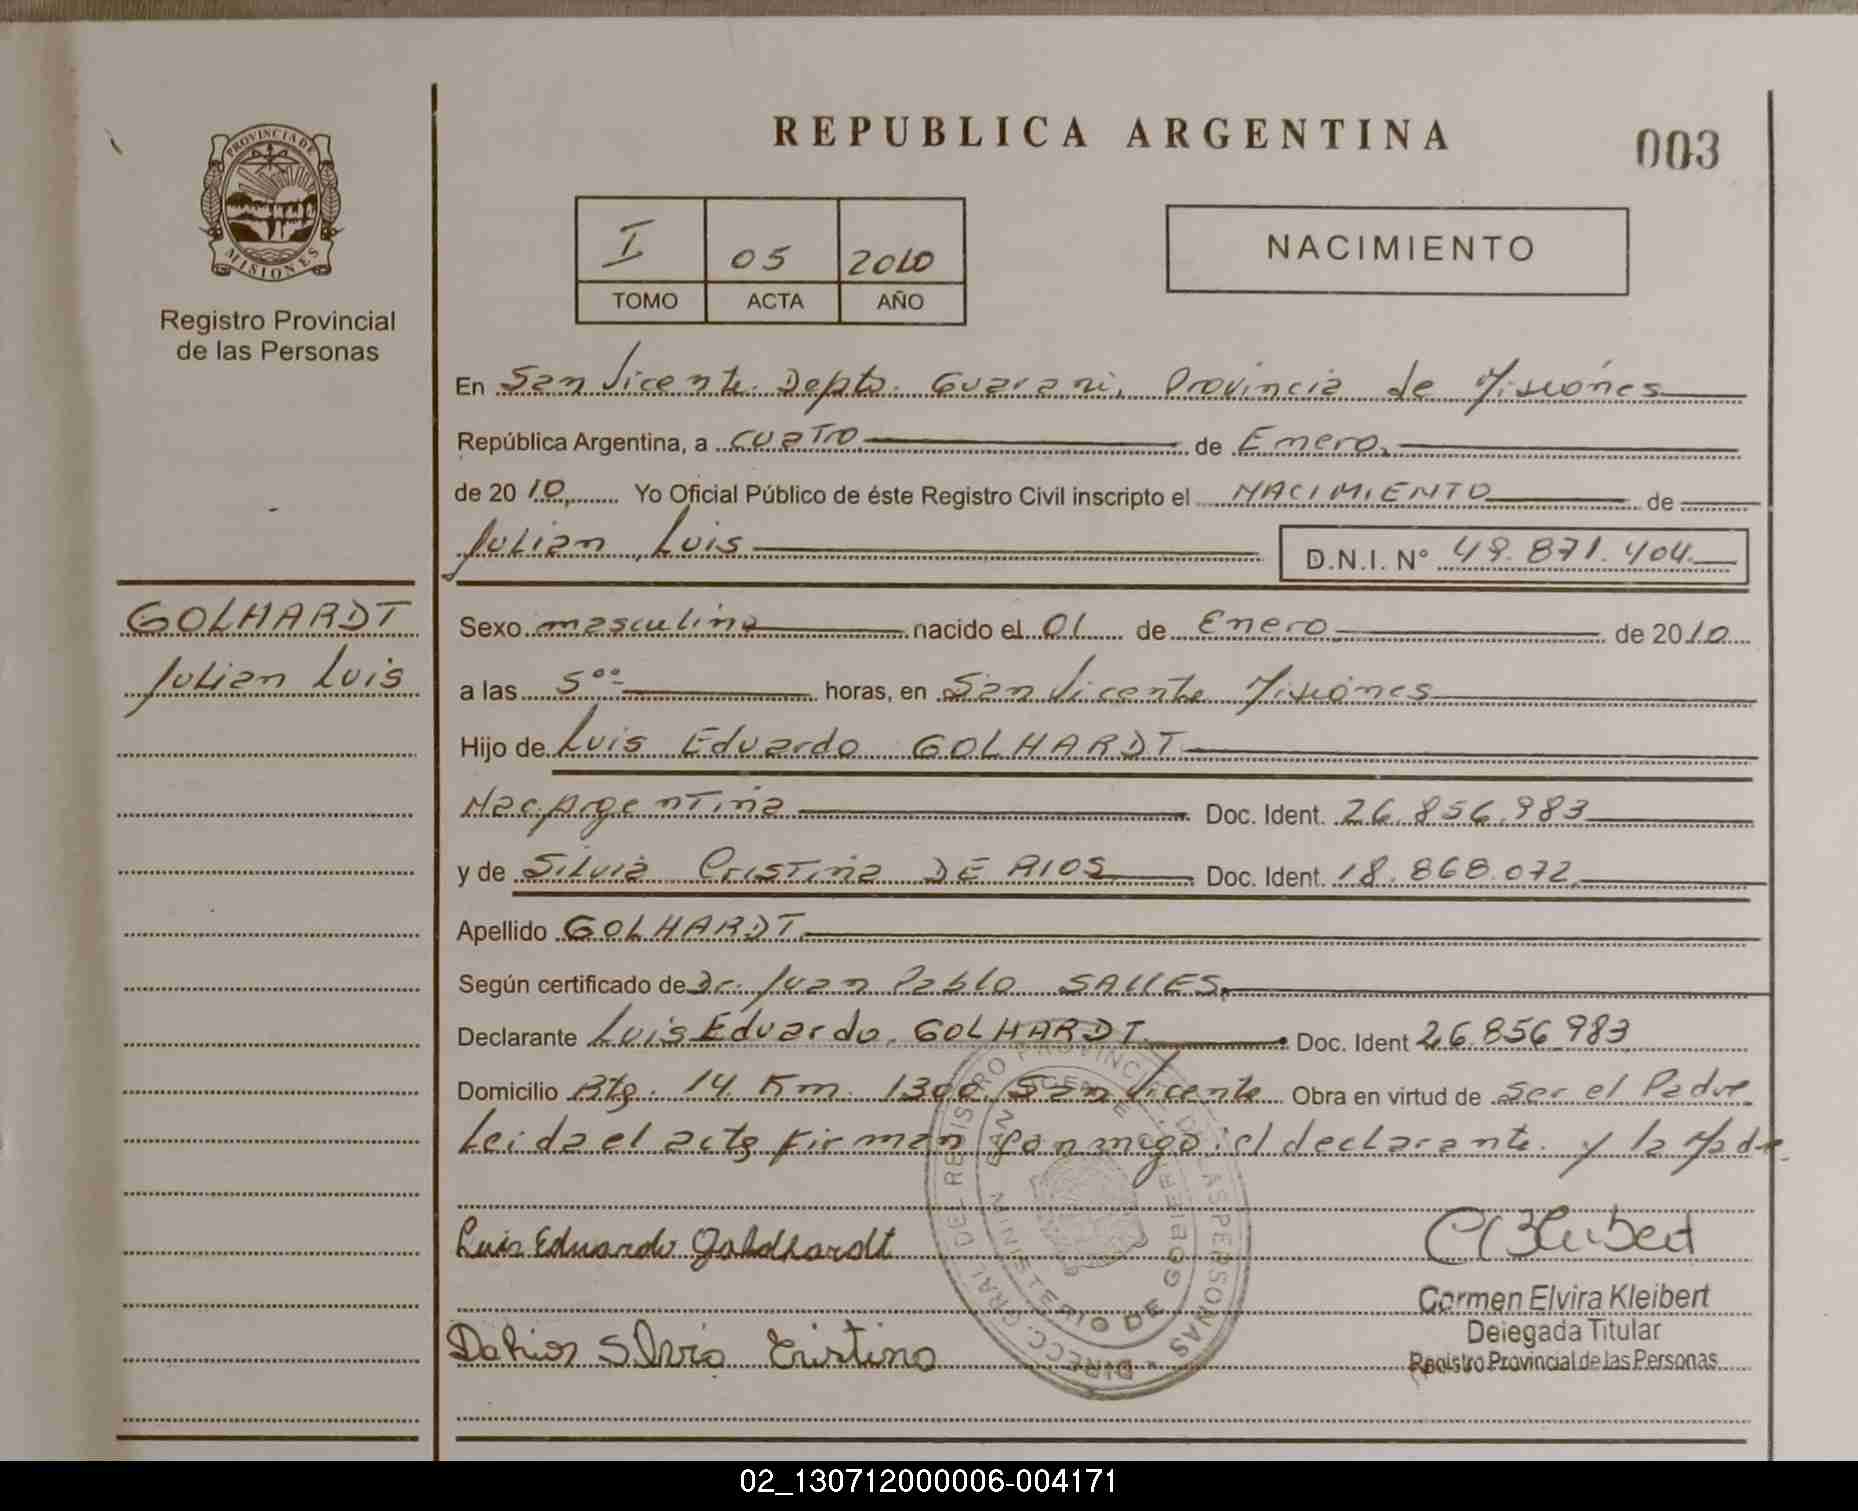 REPUBLICA ARGENTINA
003
PROVINCIA DE
MISIONES
Registro Provincial
de las Personas
I 05 2010
TOMO ACTA AÑO
NACIMIENTO
En San Vicente. Depto. Guarani, Provincia de Misiones
República Argentina, a cuatro de Enero,
de 2010, Yo Oficial Público de éste Registro Civil inscripto el NACIMIENTO de
Julian Luis D.N.I. N° 49.871.404.
GOLHARDT
Julian Luis
Sexo masculino nacido el 01 de Enero de 2010
a las 5⁰⁰ horas, en San Vicente Misiones
Hijo de Luis Eduardo GOLHARDT
Nac. Argentina Doc. Ident. 26.856.983
y de Silvia Cristina DE RIOS Doc. Ident. 18.868.072
Apellido GOLHARDT
Según certificado de Dr. Juan Pablo SALLES.
Declarante Luis Eduardo GOLHARDT Doc. Ident 26.856.983
Domicilio 14 Km. 1300. San Vicente Obra en virtud de ser el Padre
Leida el acta firman conmigo el declarante. y la Madre
Luis Eduardo Goldhardt
Silvia Cristina
DIRECC. GRAL DEL REGISTRO PROVINCIAL DE LAS PERSONAS
MINISTERIO DE GOBIERNO
SAN VICENTE
Carmen Elvira Kleibert
Delegada Titular
Registro Provincial de las Personas
02_130712000006-004171